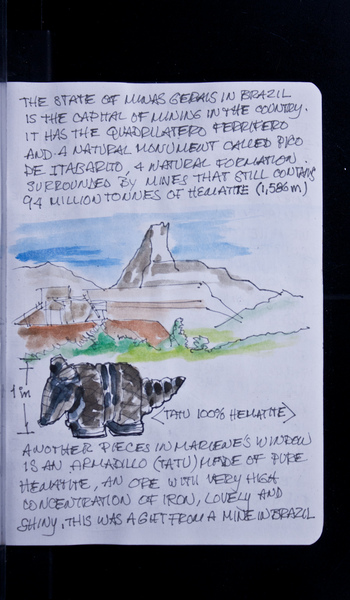 THE STATE OF MINAS GERAIS IN BRAZIL
IS THE CAPITAL OF MINING IN THE COUNTRY.
IT HAS THE QUADRILATERO FERRIFERO
AND A NATURAL MONUMENT CALLED PICO
DE ITABARITO, A NATURAL FORMATION.
SURROUNDED BY MINES THAT STILL CONTAINS
94 MILLION TONNES OF HEMATITE (1,586m)
1 in
<TATU 100% HEMATITE>
ANOTHER PIECES IN MARLENE'S WINDOW
IS AN ARMADILLO (TATU) MADE OF PURE
HEMATITE, AN ORE WITH VERY HIGH
CONCENTRATION OF IRON, LOVELY AND
SHINY, THIS WAS A GIFT FROM A MINE IN BRAZIL